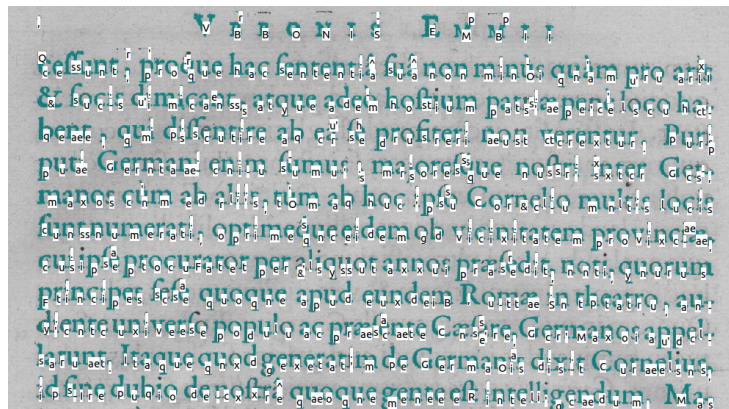 VBBONIS EMMII
cessunt, proque hac sententiâ suâ non minùs quàm pro aris
& focis dimicant, atque adeò hostium sæpe loco
qui dissentire ab profiteri non verentur.
Germani enim sumus, majoresque nostri inter Ger-
manos cùm ab aliis, tùm ab hoc ipso Cornelio multis locis
sunt numerati, optimeque eidem ob vicinitatem provinciae,
cujus ipse procurator per aliquot annos præsedit, noti, quorum
principes sese quoque apud eundem Romae in theatro, au-
diente universo populo ac præsente Cæsare, Germanos appel-
larunt. Itaque quod generatim de Germanis dixit Cornelius,
id sine dubio de nostrâ quoque gente est intelligendum.